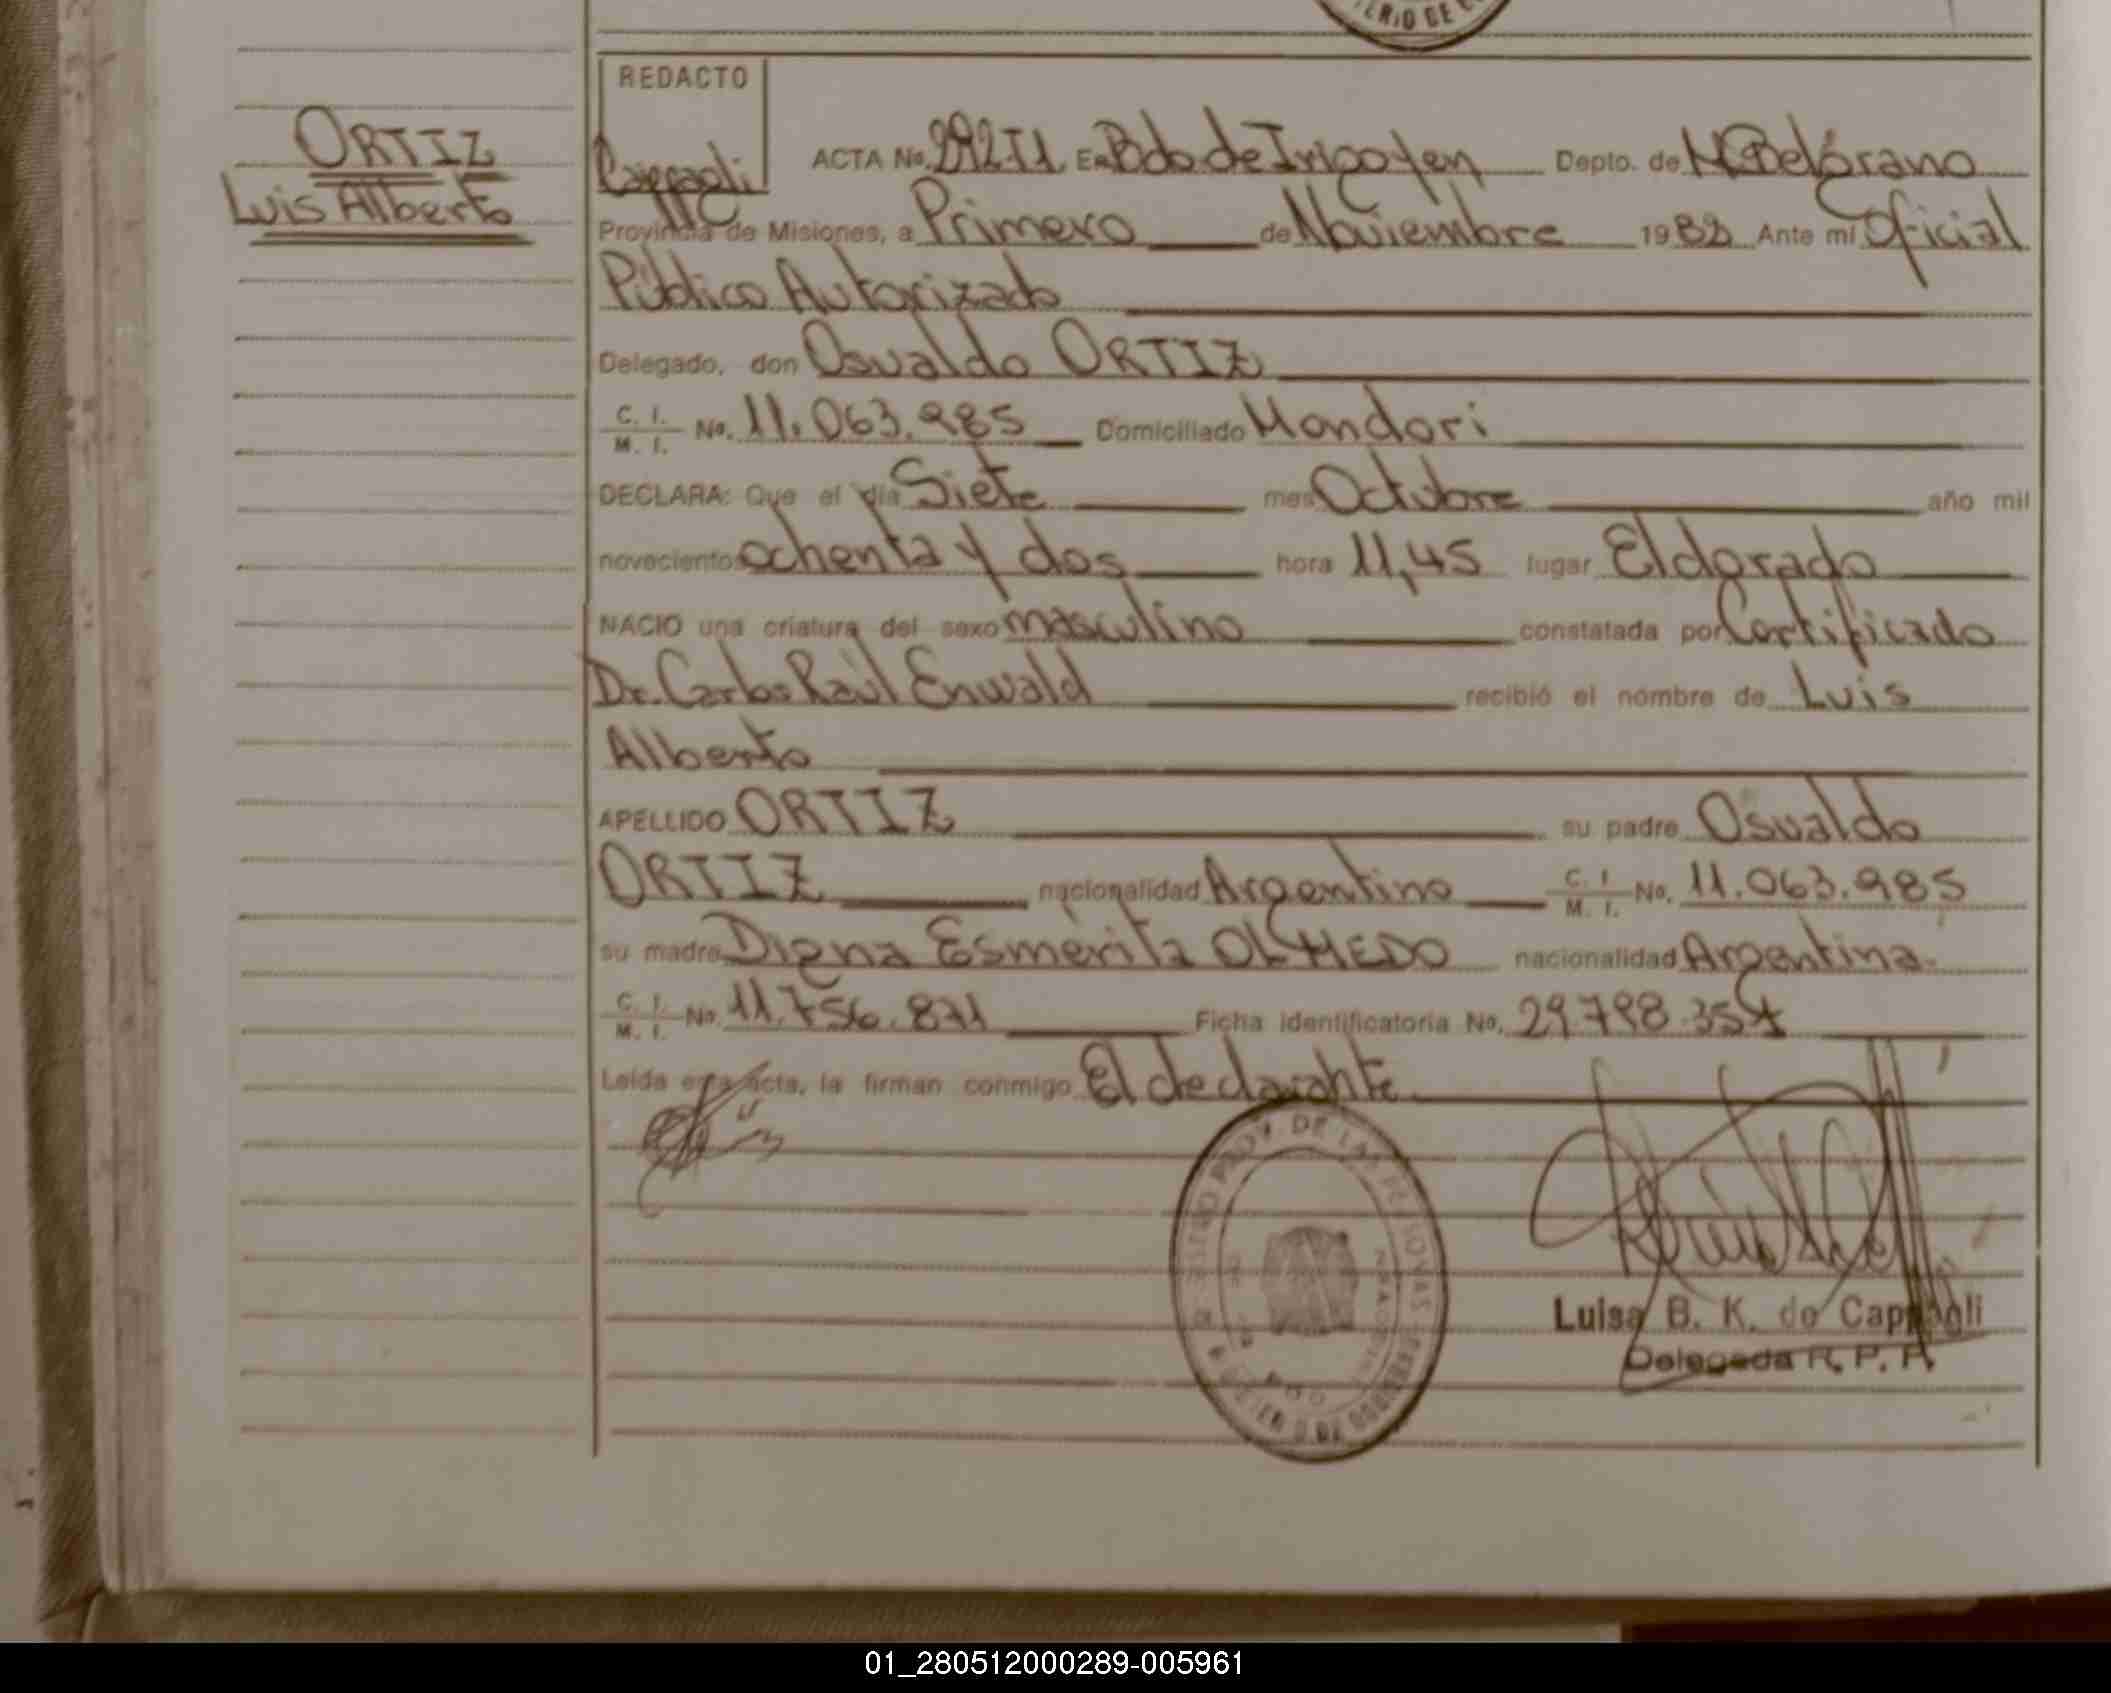 TERIO DE GO
REDACTO
ORTIZ
Luis Alberto
Cappagli
ACTA No. 292T1 En Bdo. de Irigoyen Depto. de M Belgrano
Provincia de Misiones, a Primero de Noviembre 1982 Ante mi Oficial
Público Autorizado
Delegado, don Osvaldo ORTIZ
C. I. M. I. No. 11.063.985 Domiciliado Mondori
DECLARA: Que el día Siete mes Octubre año mil
novecientos ochenta y dos hora 11,45 lugar Eldorado
NACIO una criatura del sexo masculino constatada por Certificado
Dr. Carlos Raúl Enwald recibió el nombre de Luis
Alberto
APELLIDO ORTIZ su padre Osvaldo
ORTIZ nacionalidad Argentino C. I. M. I. No. 11.063.985
su madre Digna Esmérita OLMEDO nacionalidad Argentina.
C. I. M. I. No. 11.756.871 Ficha identificatoria No. 29.798.354
Leída esta acta, la firman conmigo El declarante.
PROV. DE LAS PERSONAS
MINISTERIO DE GOBIERNO
Luisa B. K. de Cappagli
Delegada R. P. P.
01_280512000289-005961